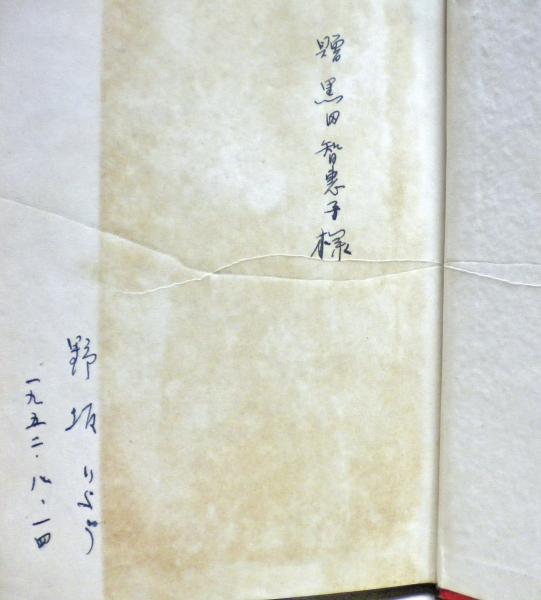 贈 黒田智恵子様
野坂
一九五二・八・一四